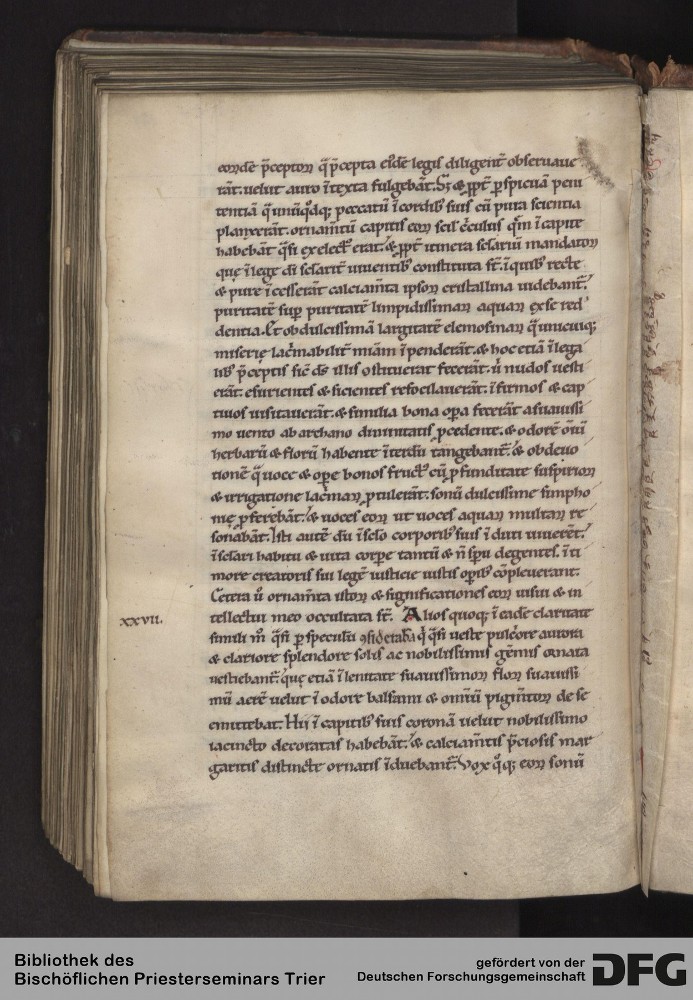 eorūdē p̄ceptor̄ q̄ p̄cepta eīdē legis diligent̄ obseruaue
rāt. uelut auro ītexta fulgebāt. Sꝫ & ꝓpt̄ ꝑspicuā peni
tentiā q̄ unūq̄dq; peccatū ī cordib; suis cū pura scientia
planxerāt. ornam̄tū capitis eoꝝ scil' c̄culus q̄m ī capite
habebāt q̄si ex elect̄ erat. & ꝓpt̄ itinera
quę ī lege dī uiuentib; constituta st̄. ī quib; recte
& pure īcesserāt calciam̄ta ipsoꝝ cristallina uidebant̄.
puritatē suꝑ puritatē limpidissimaꝝ aquaꝝ ex se red
dentia. Et ob dulcissimā largitatē elemosinaꝝ q̄ unicuiq;
miserię lac̄mabilit̄ īpenderāt. & hoc etiā ī lega
lib; p̄ceptis sic̄ dš illis ꝯstituerat fecerāt. ū nudos uesti
erāt. esurientes & sicientes refocilauerāt. īfirmos & cap
tiuos uisitauerāt. & similia bona oꝑa fecerāt a suauissi
mo uento ab archano diuinitatis ꝓcedente. & odorē om̄iū
herbarū & florū habente īterdū tangebant̄. & ob deuo
tionē q̄ uoce & oꝑe bonos fruct̄ cū ꝓfunditate suspirioꝝ
& irrigatione lac̄maꝝ ꝓtulerāt. sonū dulcissime simpho
nię ꝓferebāt. & uoces eoꝝ ut uoces aquaꝝ multaꝝ re
sonabāt. Isti autē dū ī sc̄lo corporib; suis īduti uiuerēt.
ī sc̄lari habitu & uita corꝑe tantū & n̄ spū degentes. ī ti
more creatoris sui legē iusticie iustis oꝑib; cōpleuerant.
Cetera ū ornam̄ta istoꝝ & significationes eoꝝ uisui & in
tellectui meo occultata st̄. Alios quoq; ī eadē claritate
xxvii.
simili m̄ q̄si ꝑ speculū ꝯsiderabā q̄ q̄si ueste pulc̄ore aurora
& clariore splendore solis ac nobilissimis gēmis ornata
uestiebant̄. quę etiā ī lenitate suauissimoꝝ floꝝ suauissi
mū aerē uelut ī odore balsami & om̄iū pigm̄toꝝ de se
emittebat. Hii ī capitib; suis coronā uelut nobilissimo
iacincto decoratas habebāt. & calciam̄tis p̄ciosis mar
garitis distincte ornatis īduebant̄. Vox q̄q; eoꝝ sonū
Bibliothek des
Bischöflichen Priesterseminars Trier
gefördert von der
Deutschen Forschungsgemeinschaft
DFG